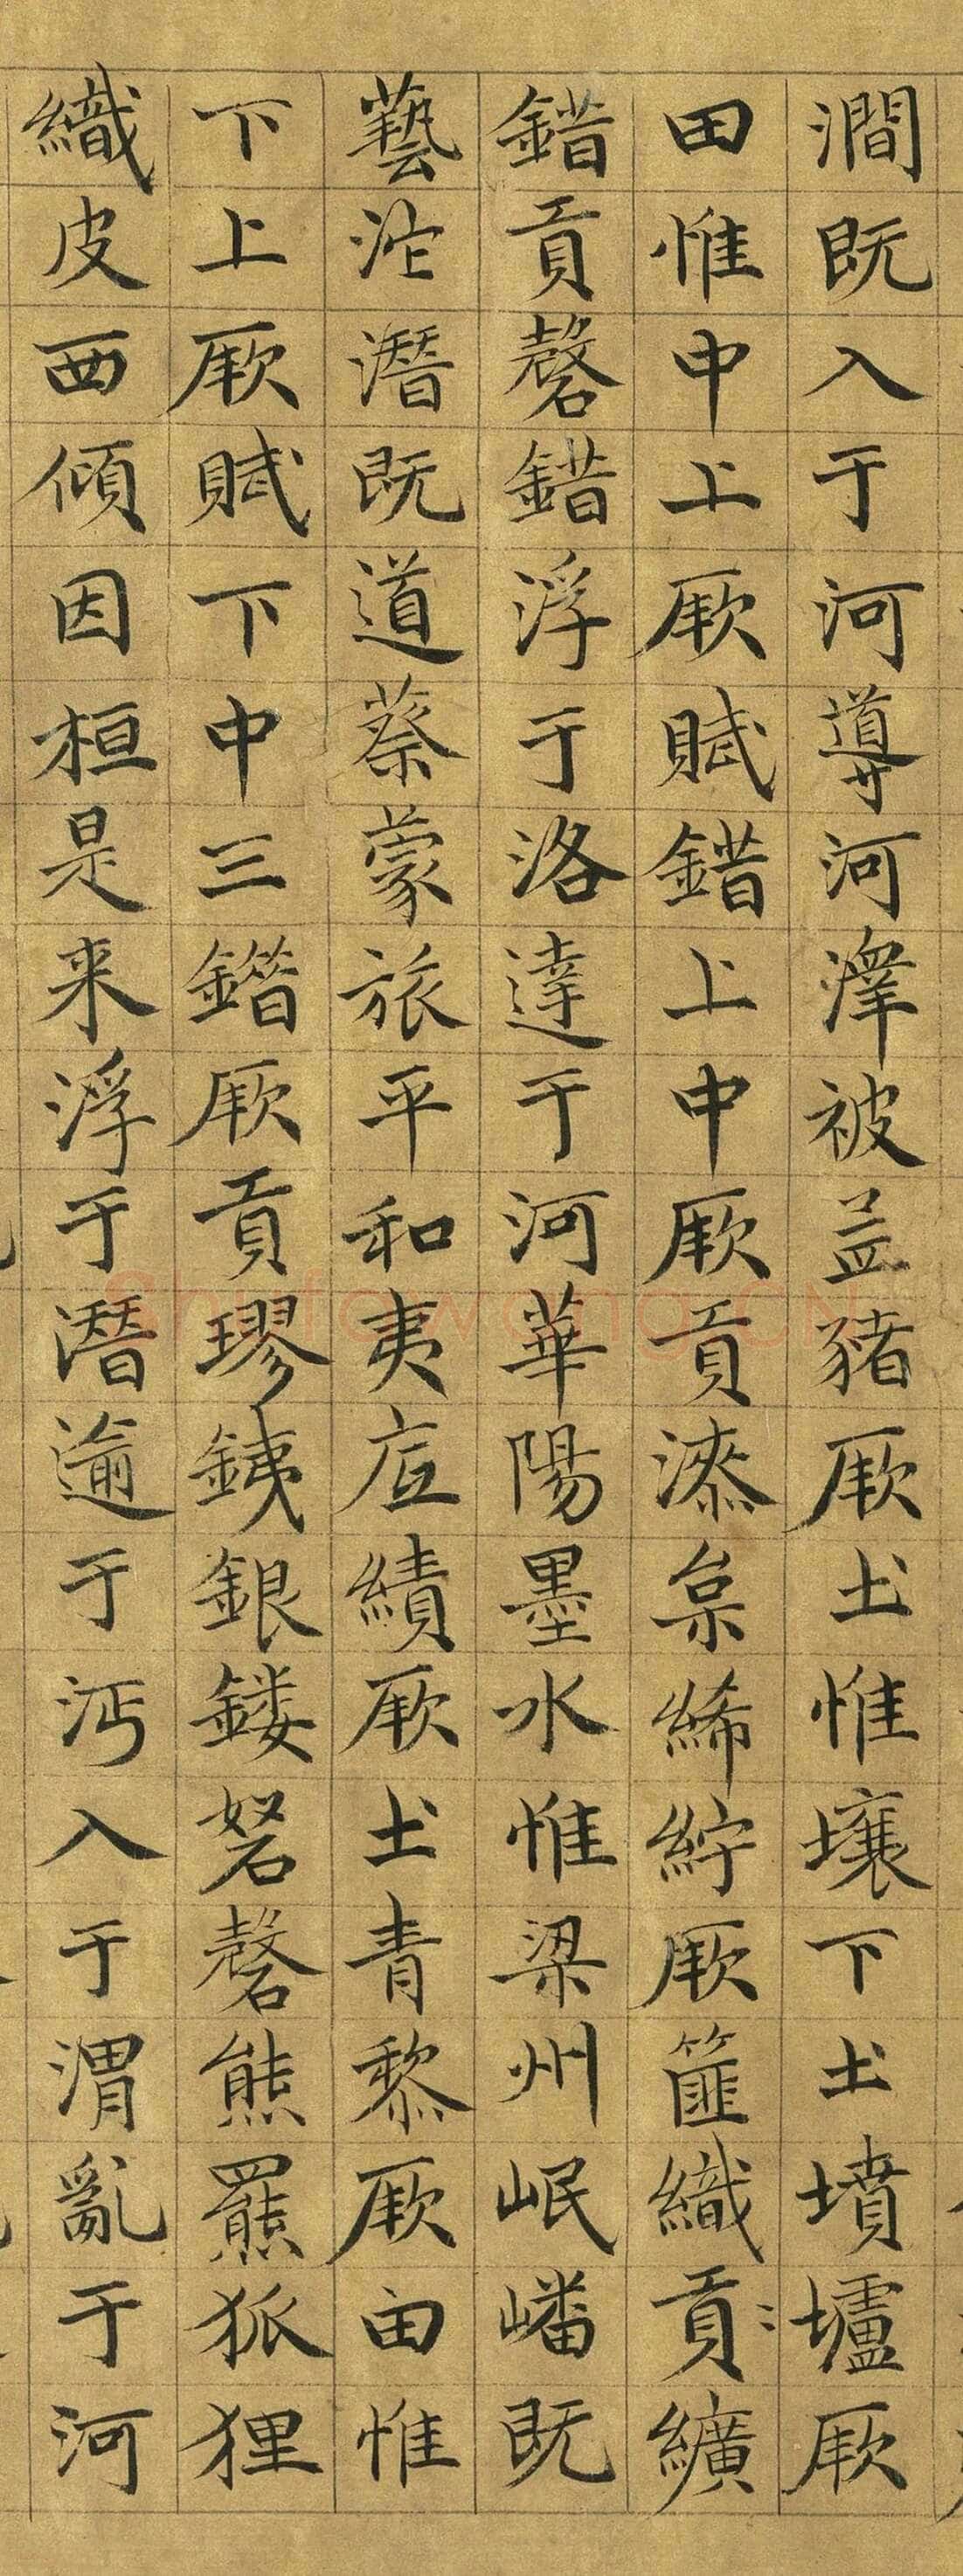 澗既入于河導河澤被益豬厥土惟壤下土墳壚厥
田惟中上厥賦錯上中厥貢漆枲絺紵厥篚織貢纊
錯貢磬錯浮于洛達于河華陽墨水惟梁州岷嶓既
藝沱潛既道蔡蒙旅平和夷底績厥土青黎厥田惟
下上厥賦下中三錯厥貢璆銕銀鏤砮磬熊羆狐狸
織皮西傾因桓是来浮于潛逾于沔入于渭亂于河
shufawang.CN